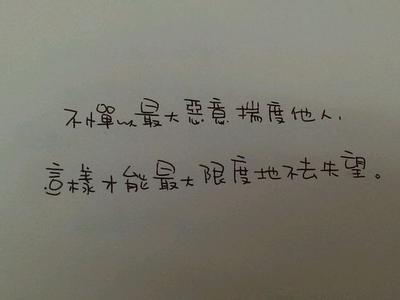 不惮以最大惡意揣度他人,
這樣才能最大限度地不去失望。